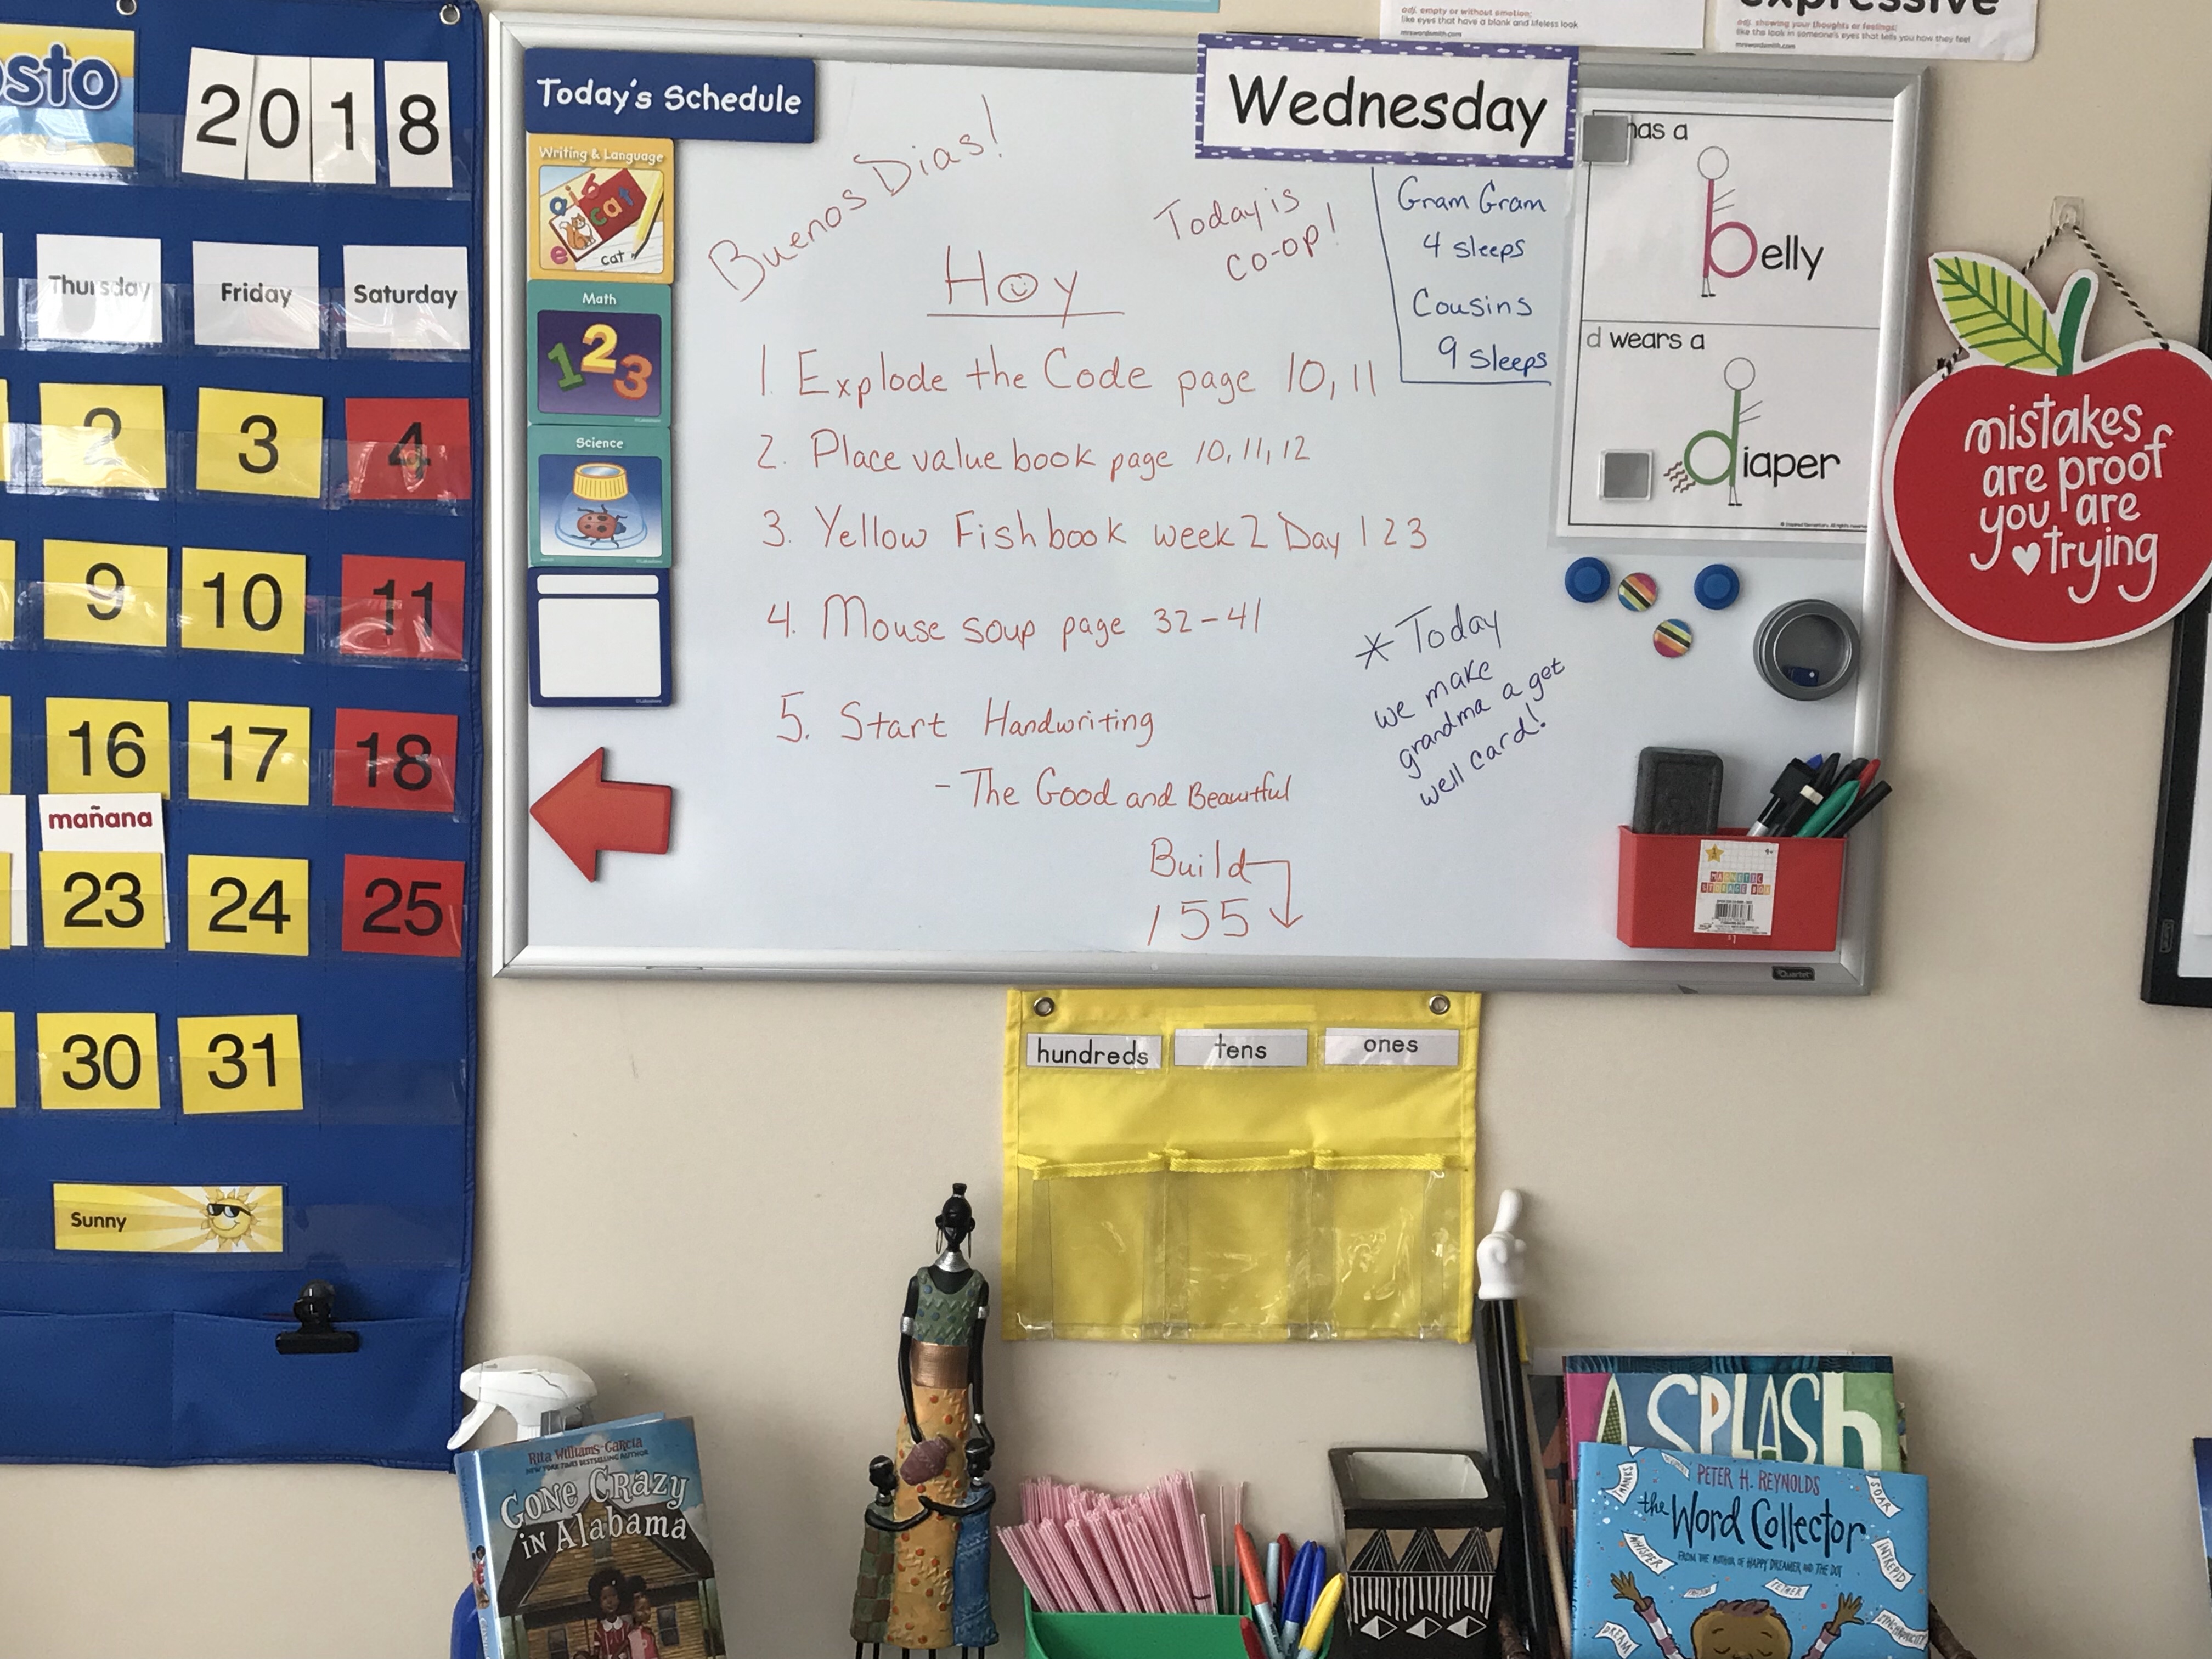 osto
2018
Thursday Friday Saturday
2 3 4
9 10 11
16 17 18
mañana
23 24 25
30 31
Sunny
Today's Schedule
Writing & Language
cat
cat
Math
1 2 3
Science
Wednesday
Buenos Dias!
Today is
co-op!
Gram Gram
4 sleeps
Cousins
9 sleeps
Hoy
1. Explode the Code page 10, 11
2. Place value book page 10, 11, 12
3. Yellow Fish book week 2 Day 1 2 3
4. Mouse soup page 32-41
5. Start Handwriting
- The Good and Beautiful
Build
155
* Today
we make
grandma a get
well card!
adj. empty or without emotion:
like eyes that have a blank and lifeless look
mrswordsmith.com
expressive
adj. showing your thoughts or feelings:
like the look in someone's eyes that tells you how they feel
mrswordsmith.com
has a
belly
d wears a
diaper
mistakes
are proof
you are
trying
MAGNETIC
STORAGE BOX
Quartet
hundreds tens ones
RITA WILLIAMS-GARCIA
NEW YORK TIMES BESTSELLING AUTHOR
GONE CRAZY
IN ALABAMA
A SPLASh
PETER H. REYNOLDS
the Word Collector
FROM THE AUTHOR OF HAPPY DREAMER AND THE DOT
SOAR
WHISPER
INTREPID
DREAM